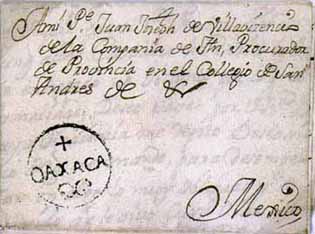 Ami Pe. Juan Joseph de Villavicencio
de la Compania de Jhs, Procurador
de Provincia en el Collegio de San
Andres de
OAXACA
Mexico